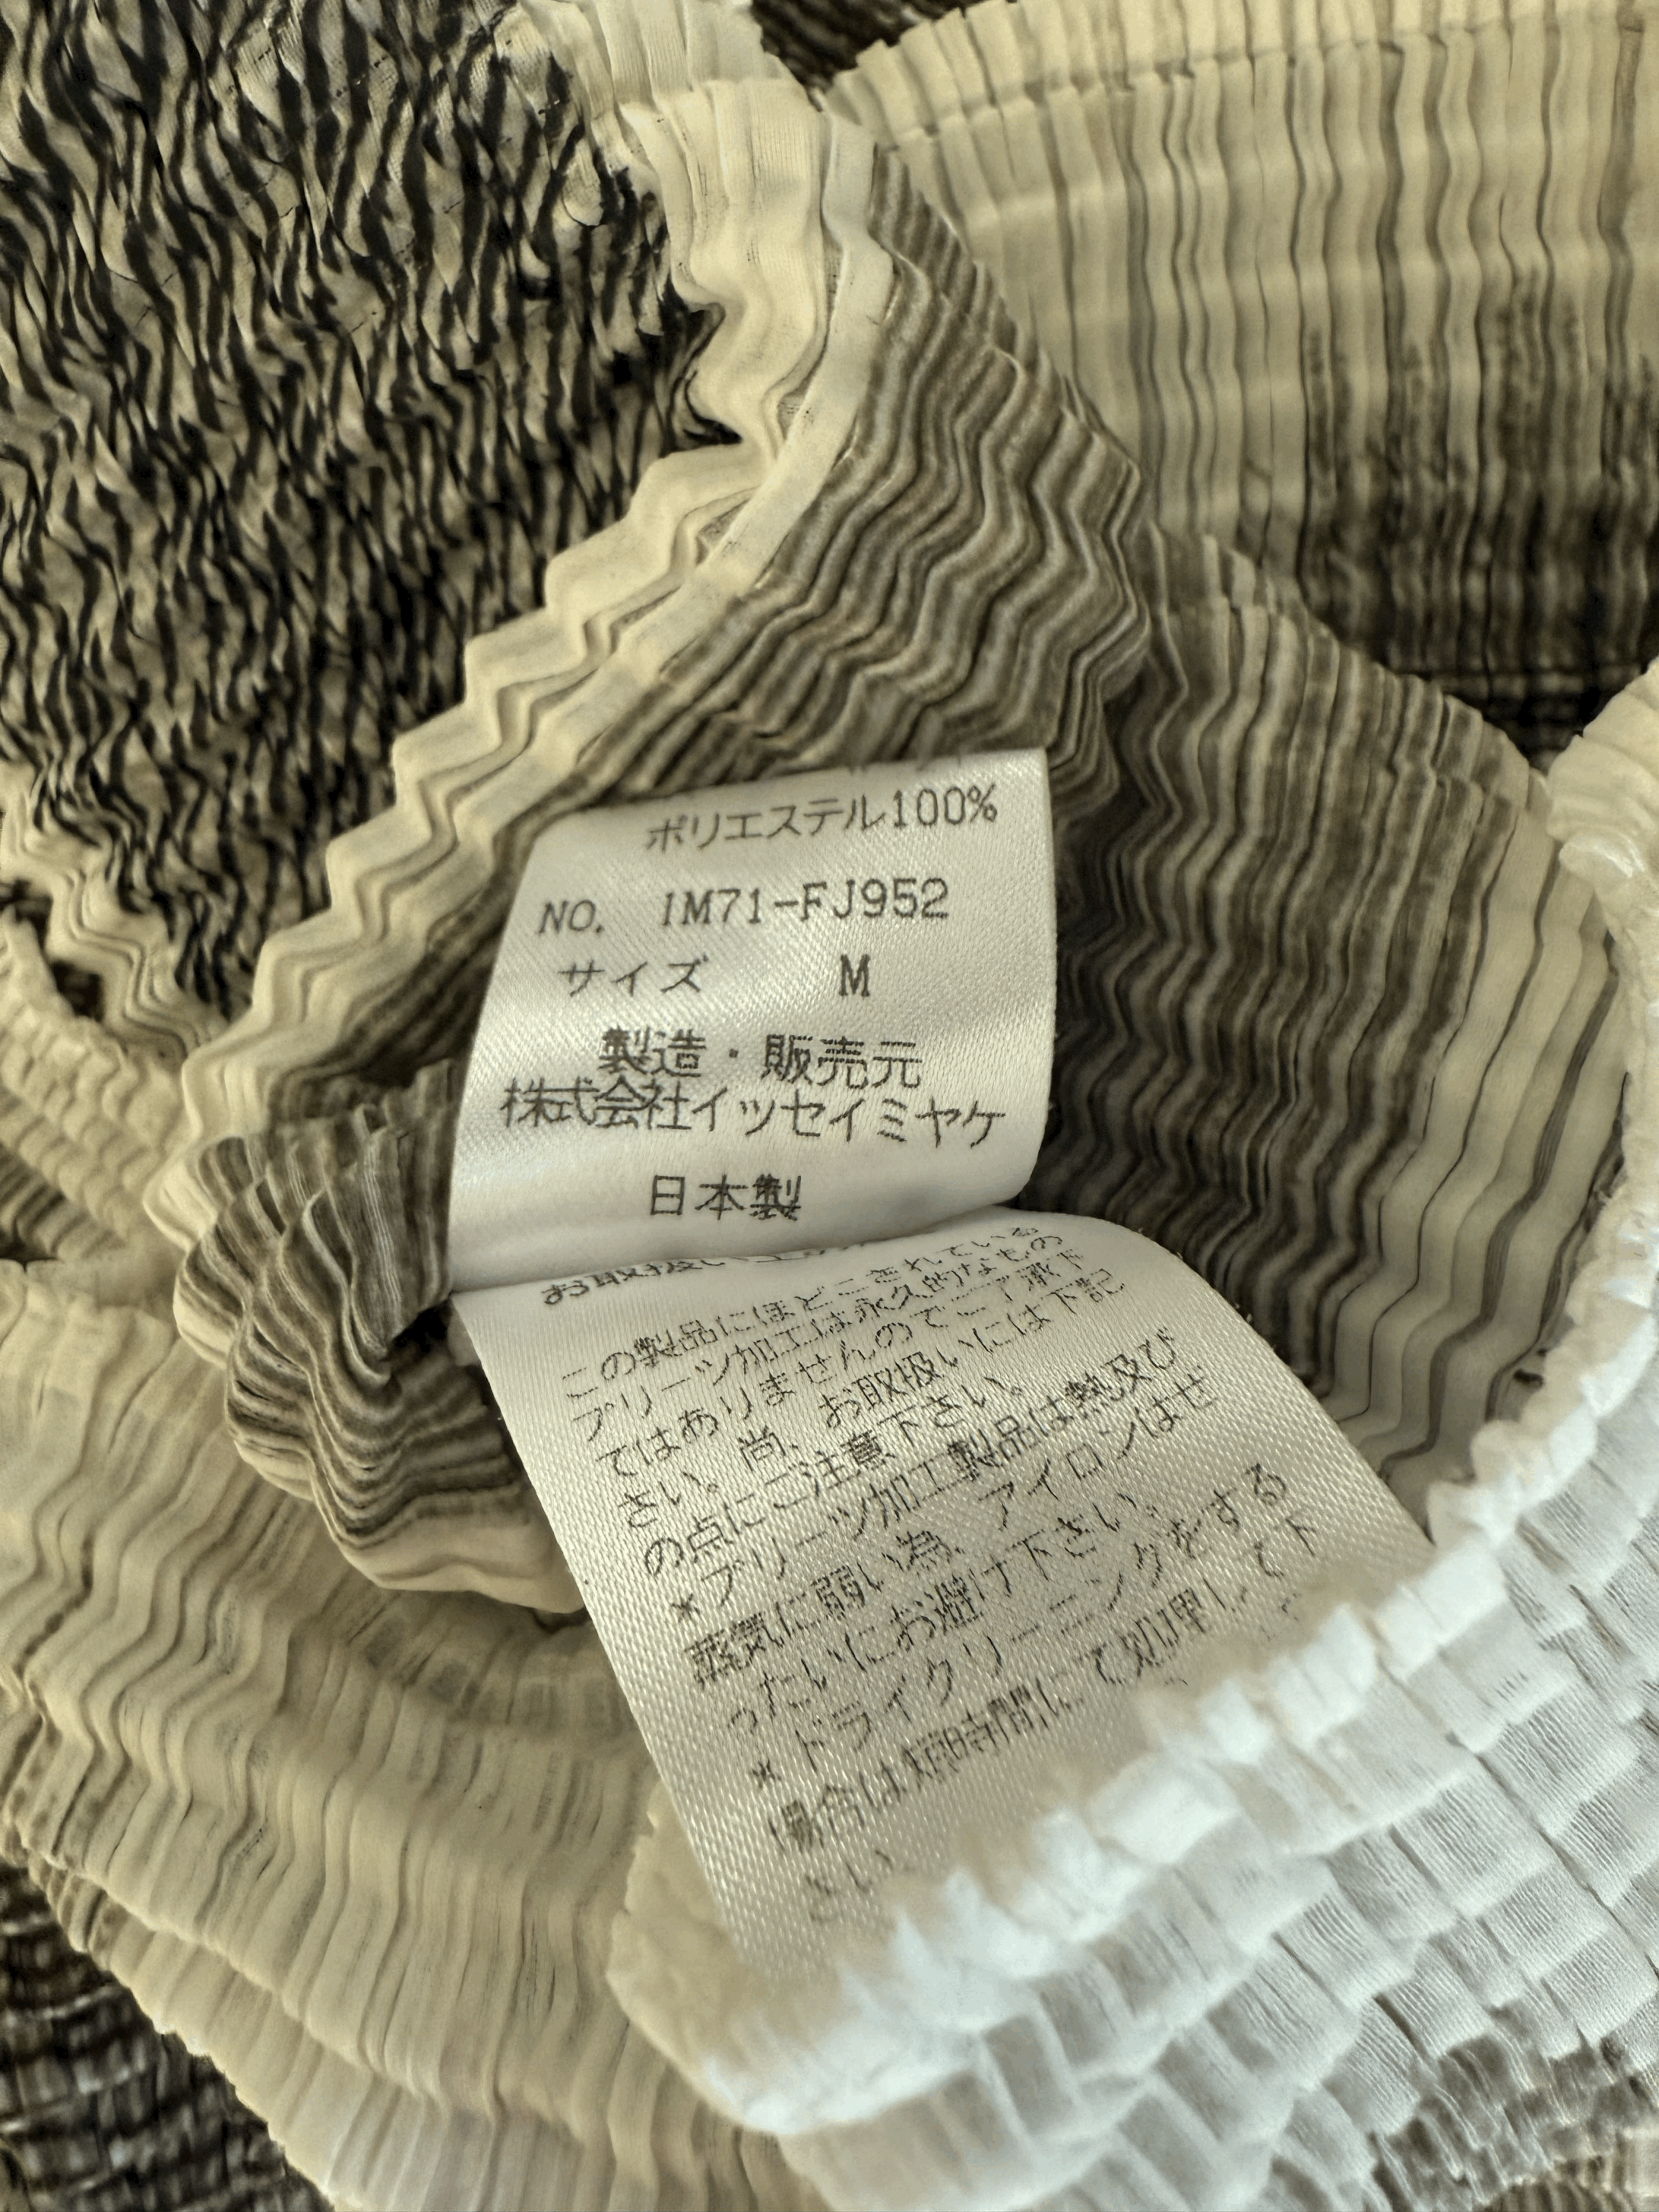 ポリエステル100%
NO. IM71-FJ952
サイズ M
製造・販売元
株式会社イッセイミヤケ
日本製
お取扱い上の
この製品にほどこされている
プリーツ加工は永久的なもの
ではありませんのでご了承下
さい。尚、お取扱いには下記
の点にご注意下さい。
*プリーツ加工製品は熱及び
蒸気に弱い為、アイロンはぜ
ったいにお避け下さい。
*ドライクリーニングをする
場合は短時間にて処理して下
さい